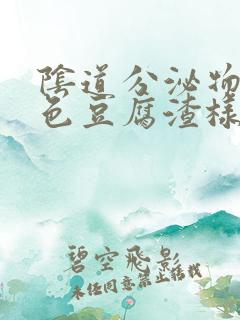 陰道分泌物
色豆腐渣樣
碧空飛影
未經同意禁止轉載